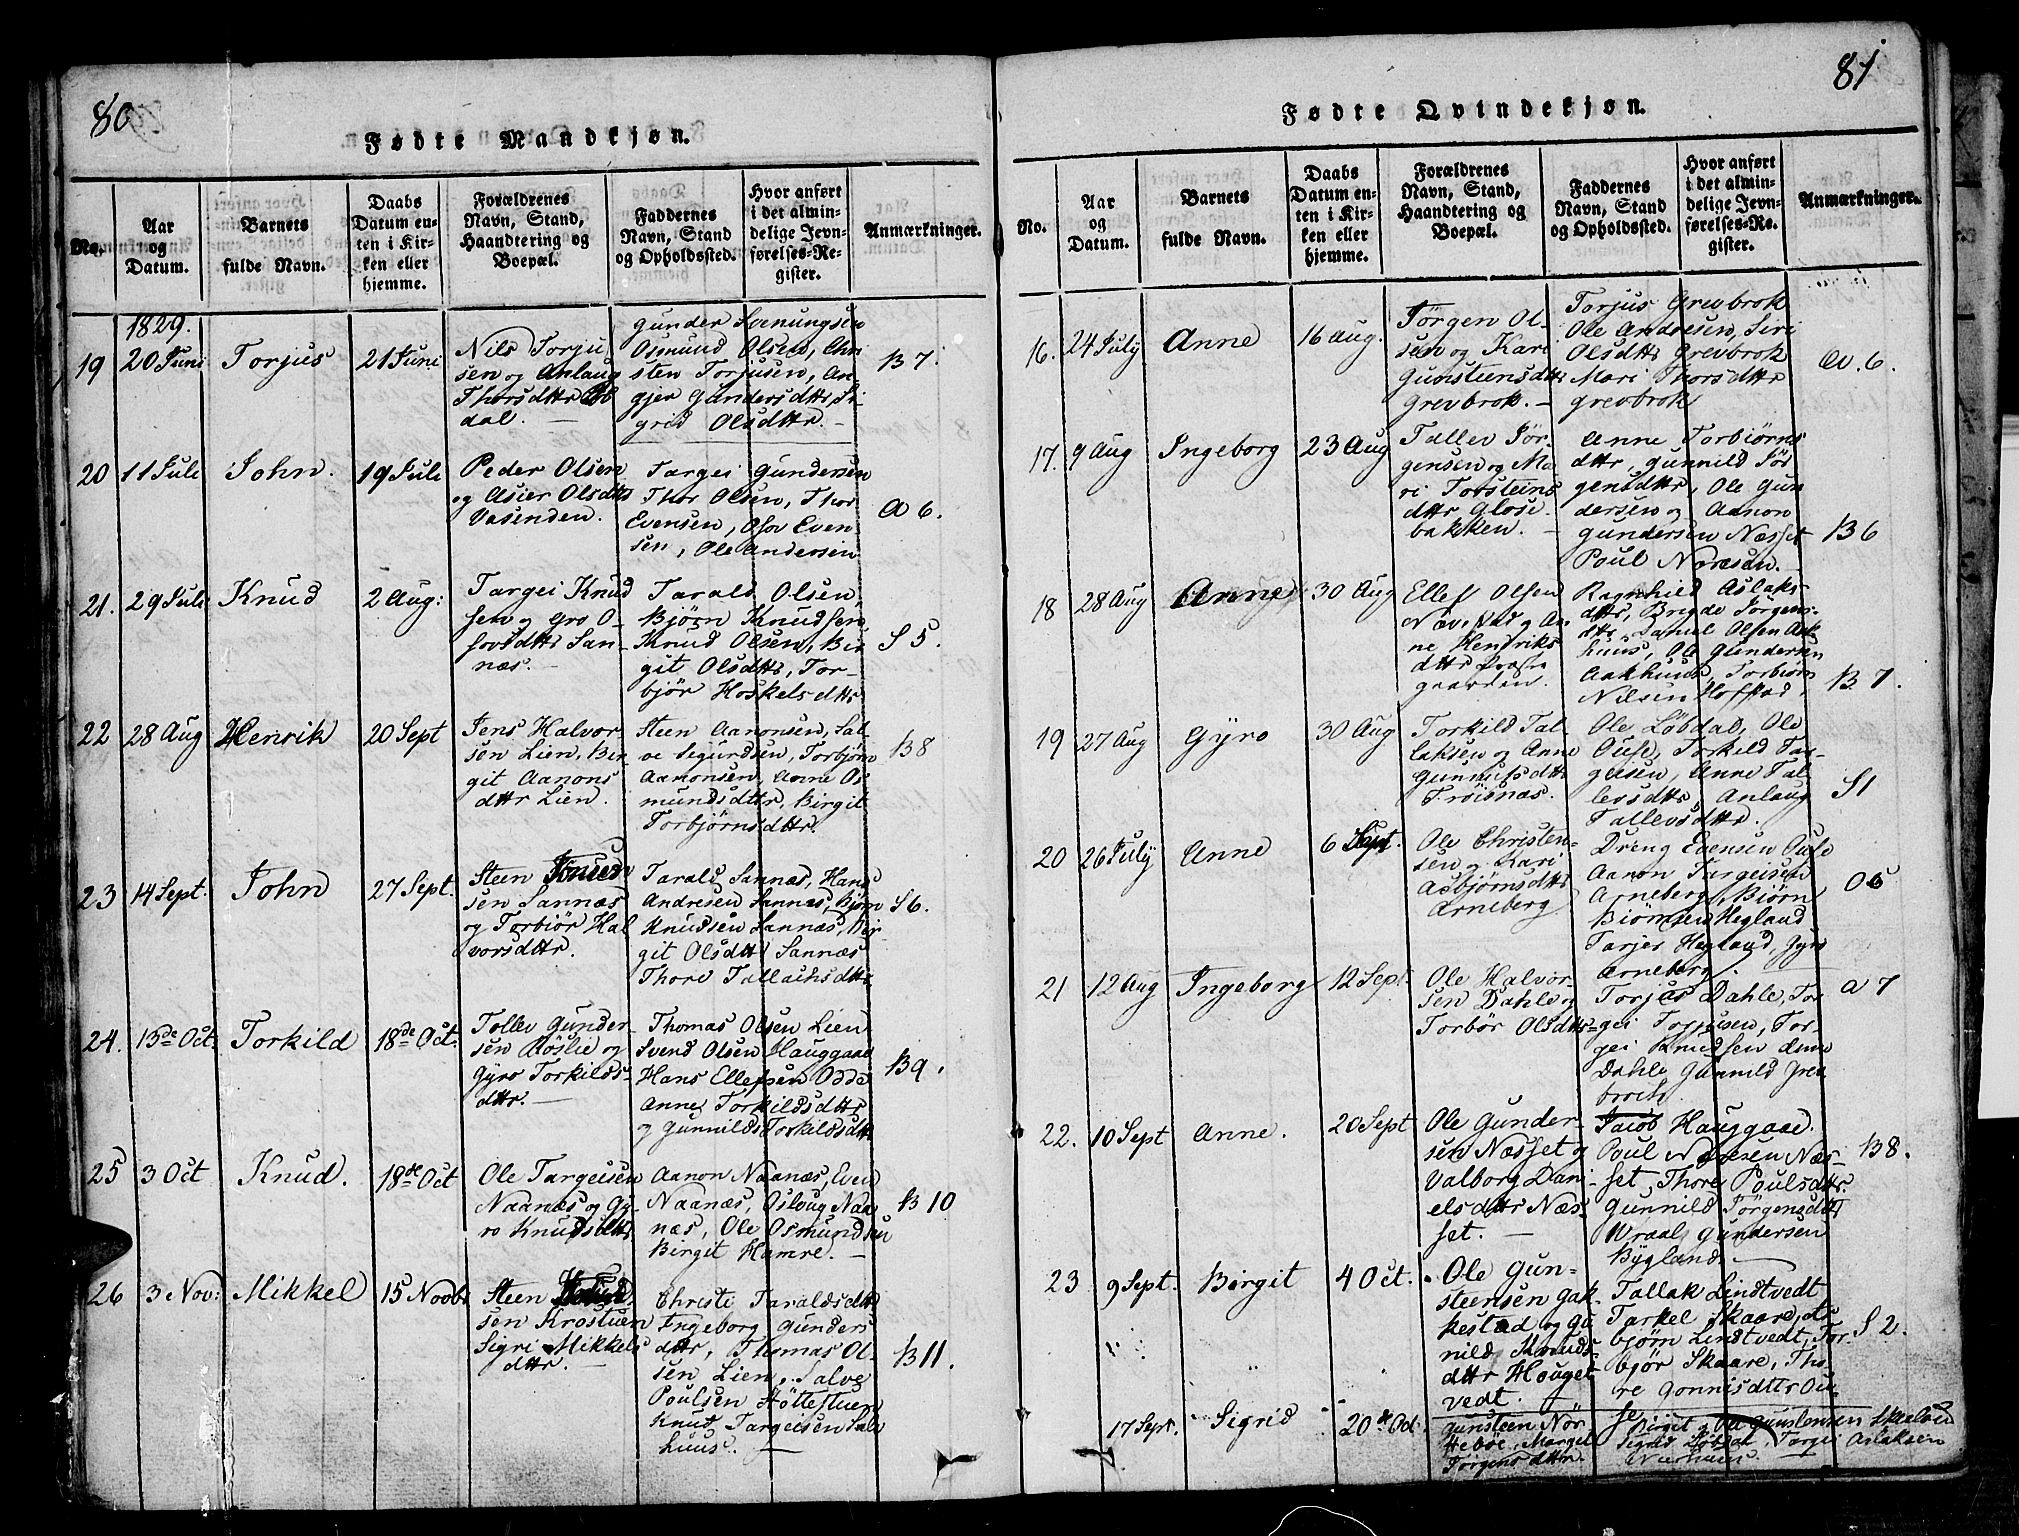 80
Fødte Mandkjøn.
No.
Aar
og
Datum.
Barnets
fulde Navn.
Daabs
Datum en-
ten i Kir-
ken eller
hjemme.
Forældrenes
Navn, Stand,
Haandtering og
Boepæl.
Faddernes
Navn, Stand
og Opholdssted.
Hvor anført
i det almin-
delige Jevn-
førelses-Re-
gister.
Anmærkninger.
1829.
19
20 Juni
Torjus
21 Juni
Nils Torju
sen og Anlaug
Thorsdttr
dal. —
Gunder Svenungsen
Osmund Olsen, Chri
sten Torjusen, An
gjer Gundersdttr, Si
grid Olsdttr. —
B 7.
20
11 Juli
John.
19 Juli
Peder Olsen
og Asier Olsdttr
Vasenden.
Targei Gundersen
Thor Olsen, Thor
Evensen, Osov Even
sen, Ole Andersen
A 6.
21.
29 Juli
Knud
2 Aug:
Targei Knud
sen og Gro O-
sovsdttr San-
næs. —
Tarald Olsen,
Bjørn Knudsen
Knud Olsen, Bir
git Olsdttr, Tor-
bjør Hoskelsdttr
S 5.
22
28 Aug
Henrik
20 Sept
Jens Halvor
sen Lien, Bir-
git Aanons
dttr Lien.
Steen Aanonsen, Sal-
ve Sigurdsen, Torbjørn
Aanonsen, Anne Os
mundsdttr, Birgit
Torbjørnsdttr.
B8
23
14 Sept.
John
27 Sept.
Steen Knud
sen Sannæs
og Torbiør Hal
vorsdttr.
Tarald Sannæs, Hans
Andresen Sannæs, Bjørn
Knudsen Sannæs, Bir
git Olsdttr Sannæs
Thore Tallachsdttr
S6.
24.
13de Oct.
Torkild
18de Oct.
Tollev Gunder-
sen Røslie og
Gyro Torkilds-
dttr. —
Thomas Olsen Lien
Svend Olsen Hauggaae
Hans Ellefsen Odde
Anne Torkildsdttr
og Gunnilds Torkildsdttr
B9.
25
3 Oct
Knud.
18de Oct
Ole Targeisen
Naanæs og Gy-
ro Knudsdttr
Aanon Naanæs, Even
Naanæs, Oslaug Naa
næs, Ole Osmundsen
Birgit Hamre. —
B 10
26
3 Nov:
Mikkel
15 Novbr
Steen
sen Krostuen
Sigri Mikkels
dttr. —
Christi Taraldsdttr
Ingeborg Gunders
dttr, Thomas Ol-
sen Lien, Salve
Poulsen Høltestuen
Knud Targeisen Sale
huus. —
B11.
81
Fødte Qvindekjøn.
No.
Aar
og
Datum.
Barnets
fulde Navn.
Daabs
Datum en-
ten i Kir-
ken eller
hjemme.
Forældrenes
Navn, Stand,
Haandtering og
Boepæl.
Faddernes
Navn, Stand
og Opholdssted.
Hvor anført
i det almin-
delige Jevn-
førelses-Re-
gister.
Anmærkninger.
16.
24 July
Anne
16 Aug.
Jørgen Ol-
sen og Kari
Gunsteensdttr
Grevbrok. —
Torjus Grevbrok
Ole Andresen, Siri
Olsdttr Grevbrok
Mari Thorsdttr
Grevbrok
A. 6.
17.
9 Aug
Ingeborg
23 Aug
Tallev Jør-
gensen og Ma
ri Torsteins
dttr Glose
bakken. —
Anne Torbiørns
dttr, Gunnild Jør
gensdttr, Ole Gun
dersen og Aanon
Gundersen Næsset
Poul Noresen. —
B6
18
28 Aug
Anne
30 Aug
Ellef Olsen
og An
ne Hendriks
dttr
gaarden.
Ragnhild Aslaks-
dttr, Brigde Jørgens-
dttr, Samuel Olsen Aak
huus, Ole Gundersen
Aakhuus, Torbiørn
Nilsen Hofstad,
B 7.
19
27 Aug
Gyro
30 Aug
Torkild Tal-
laksen og Anne
Gunnufsdttr
Frøisnæs.
Ole Løbdal, Ole
Ouse, Torkild Tar-
geisen, Anne Tal
levsdttr, Anlaug
Tallevsdttr.
S1
20
26 July
Anne
6 Sept.
Ole Christen-
sen og Kari
Asbjørnsdttr
Arneberg
Dreng Evensen Ouse
Aanon Targeisen
Arneberg, Biørn
Biørnsen Hegland
Tarjer Hegland, Gyro
Arneberg. —
O6
21
12 Aug
Ingeborg
12 Sept.
Ole Halvor-
sen Dahle og
Torbør Olsdttr
Torjus Dahle, Tor
gei Torjusen, Tor-
gei Knudsen
Dahle Gunnild Grev
brok.
A 7
22.
10 Sept
Anne.
20 Sept
Ole Gunder-
sen Næsset og
Valborg Dani-
elsdttr Næs-
set. —
Jacob Hauggaae.
Poul Noresen Næs-
set, Thore Poulsdttr.
Gunnild Jørgensdttr
Wraal Gundersen
Bygland. —
B8.
23
9 Sept.
Birgit
4 Oct.
Ole Gun-
steensen Gak-
kestad og Gu
nild Knuds-
dttr Houget-
vedt.
Tallak Lindtvedt
Tarkel Skaare, As-
bjørn Lindtvedt, Tor-
bjør Skaare, Tho-
re Gonnisdttr Ou-
se.
S 2.
17 Sept.
Sigrid
20de Oct.
Gunsteen Nør
stebøe, Marget
Jørgensdttr.
Birget og Ole Gunstensen
Sigrid Løbdal, Torgei Aslaksen